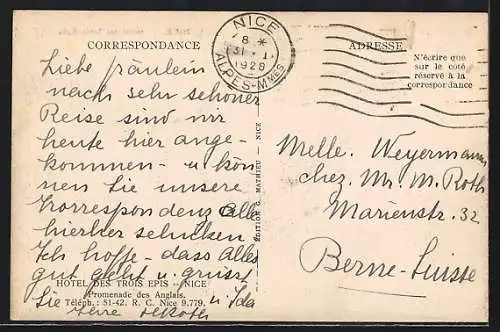 CORRESPONDANCE
Liebe Fräulein
nach sehr schöner
Reise sind wir
heute hier ange-
kommen - u. kön
nen Sie unsere
Korrespondenz alle
hierher schicken.
Ich hoffe - dass Alles
gut geht u. grüsst
Sie
u. Ida
HOTEL DES TROIS EPIS - NICE
Promenade des Anglais.
Téléph.: 51-42. R. C. Nice 9.779.
EDITION G. MATHIEU - NICE
NICE
8 *
31 - 1
1928
ALPES-MMES
ADRESSE
N'écrire que
sur le coté
réservé à la
correspondance
Melle. Weyermann
chez Mr. M. Roth
Marienstr. 32
Berne-Suisse